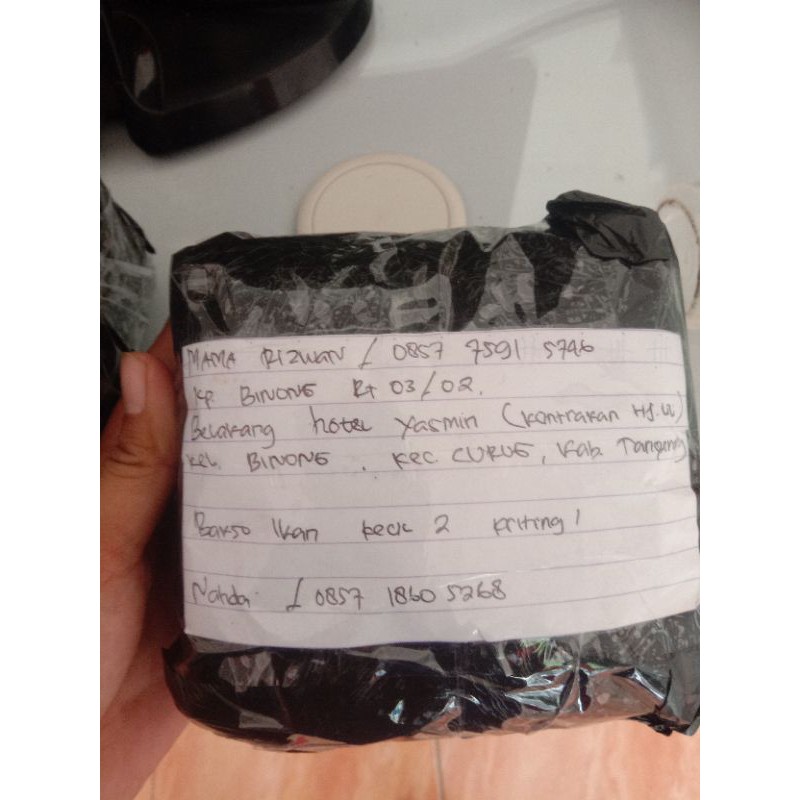 MAMA RIZWAN / 0857 7591 5746
Kp. BINONG Rt 03/02.
Belakang hotel Yasmin (kontrakan HJ.UU)
Kel. BINONG, Kec CURUG, Kab. Tangerang
Bakso Ikan kecil 2 kriting 1
Nanda / 0857 1860 5268